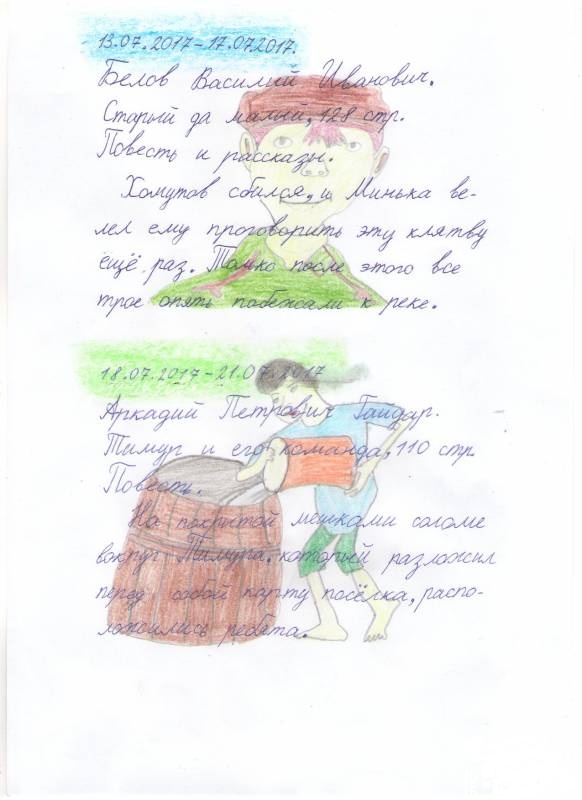 13.07.2017-17.07.2017.
Белов Василий Иванович.
Старый да малый, 128 стр.
Повесть и рассказы.
Хомутов сбился, и Минька ве-
лел ему проговорить эту клятву
ещё раз. Только после этого все
трое опять побежали к реке.
18.07.2017-21.07.2017
Аркадий Петрович Гайдар.
Тимур и его команда, 110 стр
Повесть.
На покрытой мешками соломе
вокруг Тимура, который разложил
перед собой карту посёлка, распо-
ложились ребята.